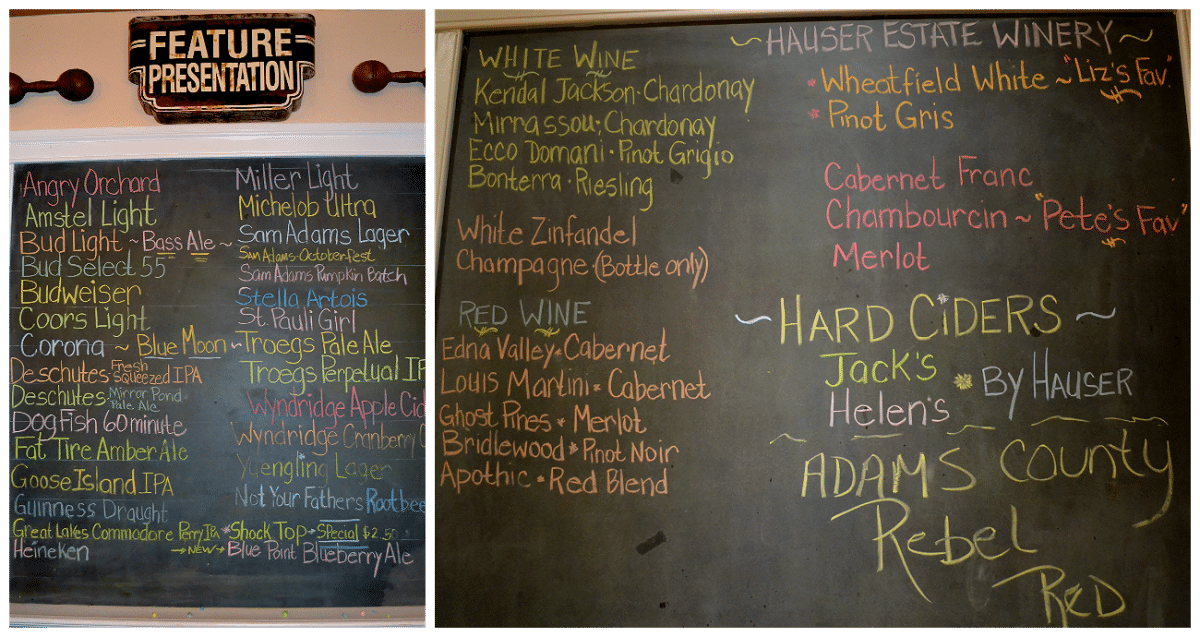 FEATURE
PRESENTATION
Angry Orchard
Amstel Light
Bud Light ~ Bass Ale ~
Bud Select 55
Budweiser
Coors Light
Corona ~ Blue Moon ~
Deschutes - Fresh Squeezed IPA
Deschutes Mirror Pond Pale Ale
DogFish 60 minute
Fat Tire Amber Ale
Goose Island IPA
Guinness Draught
Great Lakes Commodore Perry IPA * Shock Top - Special $2.50
Heineken → NEW → Blue Point Blueberry Ale
Miller Light
Michelob Ultra
Sam Adams Lager
Sam Adams - Octoberfest
Sam Adams Pumpkin Batch
Stella Artois
St. Pauli Girl
Troegs Pale Ale
Troegs Perpetual IP
Wyndridge Apple Cid
Wyndridge Cranberry
Yuengling Lager
Not Your Fathers Rootbee
WHITE WINE
Kendal Jackson · Chardonay
Mirrassou; Chardonay
Ecco Domani · Pinot Grigio
Bonterra · Riesling
White Zinfandel
Champagne (Bottle only)
RED WINE
Edna Valley * Cabernet
Louis Martini * Cabernet
Ghost Pines * Merlot
Bridlewood * Pinot Noir
Apothic * Red Blend
~ HAUSER ESTATE WINERY ~
* Wheatfield White ~ "Liz's Fav"
* Pinot Gris
Cabernet Franc
Chambourcin ~ "Pete's Fav"
Merlot
~ HARD CiDERS ~
Jack's
Helen's
* BY HAUSER
ADAMS County
Rebel
RED